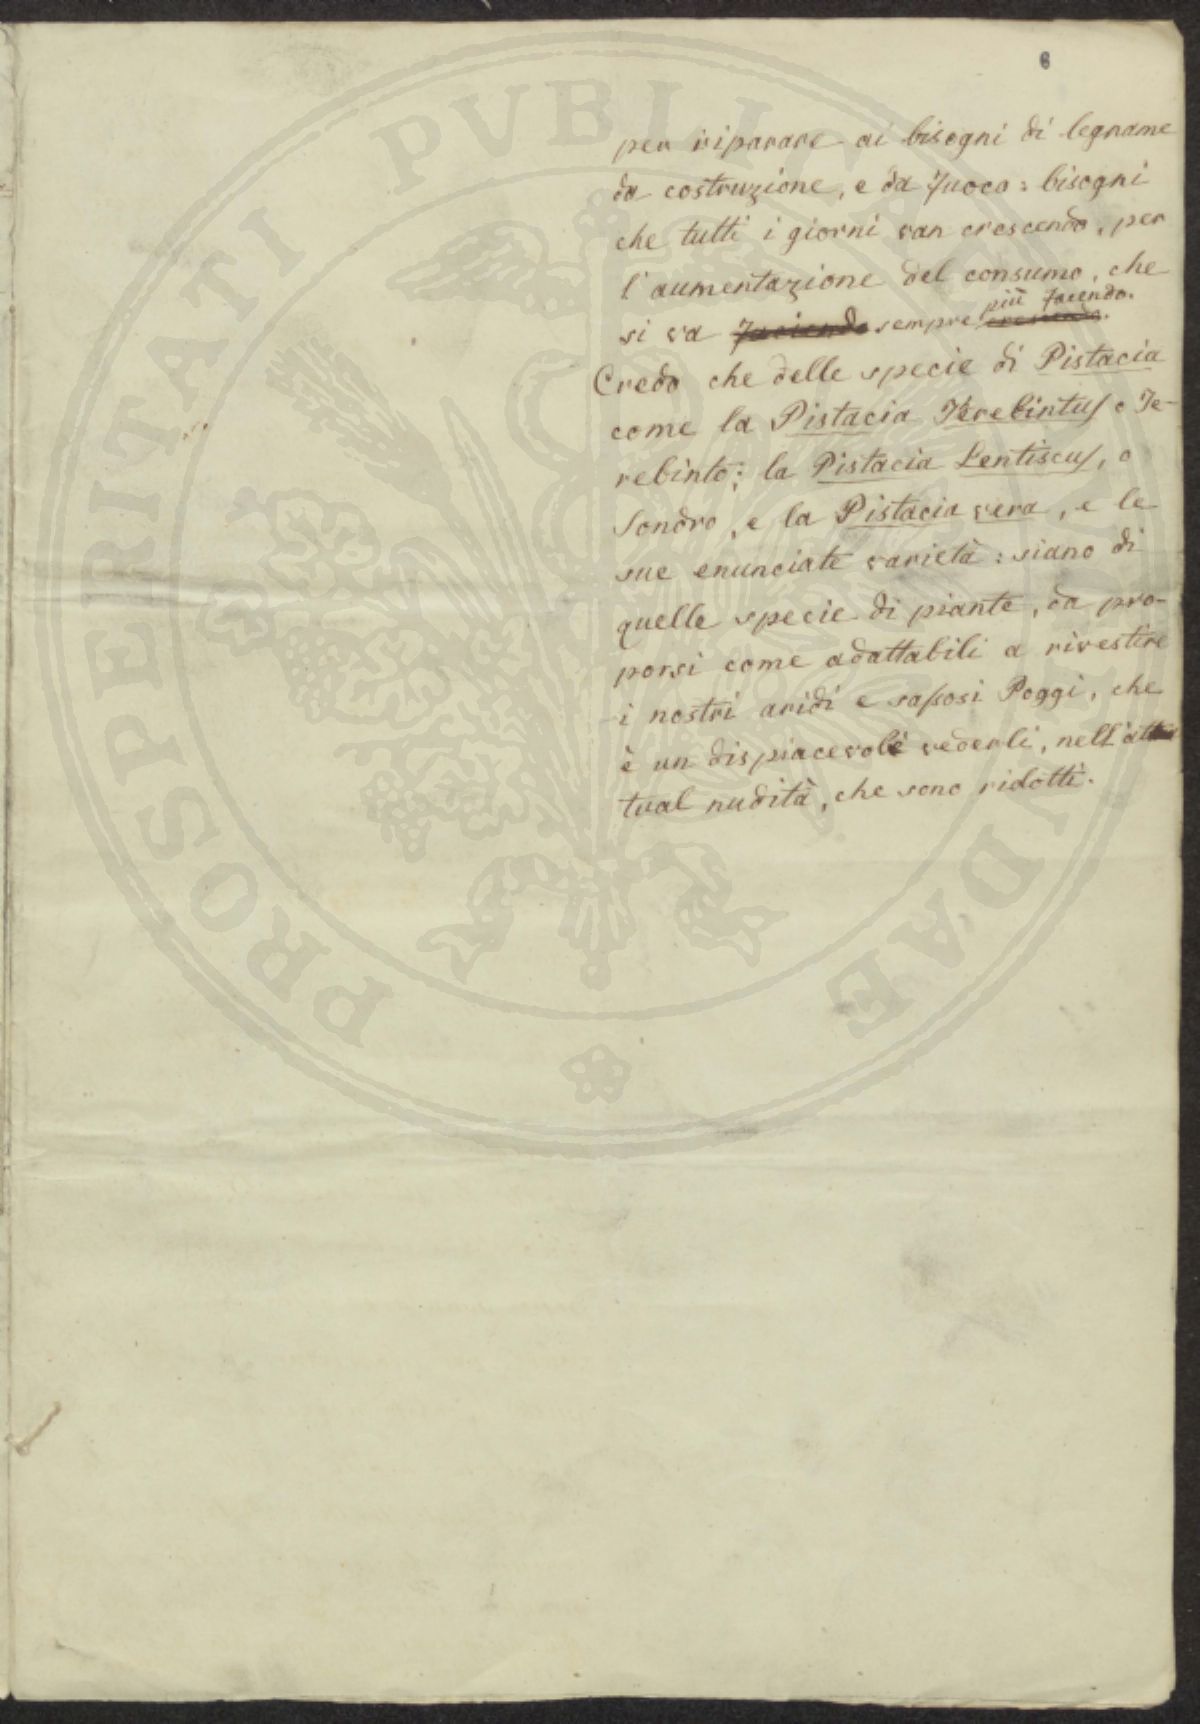 6
per riparare ai bisogni di legname
da costruzione, e da fuoco: bisogni
che tutti i giorni van crescendo, per
l'aumentazione del consumo, che
più facendo.
si va faciendo sempre crescendo.
Credo che delle specie di Pistacia
come la Pistacia Terebintus o Te-
rebinto; la Pistacia Lentiscus, o
Sondro, e la Pistacia vera, e le
sue enunciate varietà: siano di
quelle specie di piante, da pro-
porsi come adattabili a rivestire
i nostri aridi e sassosi Poggi, che
è un dispiacevole vederli, nell'at
tual nudità, che sono ridotti.
PROSPERITATI PVBLICAE